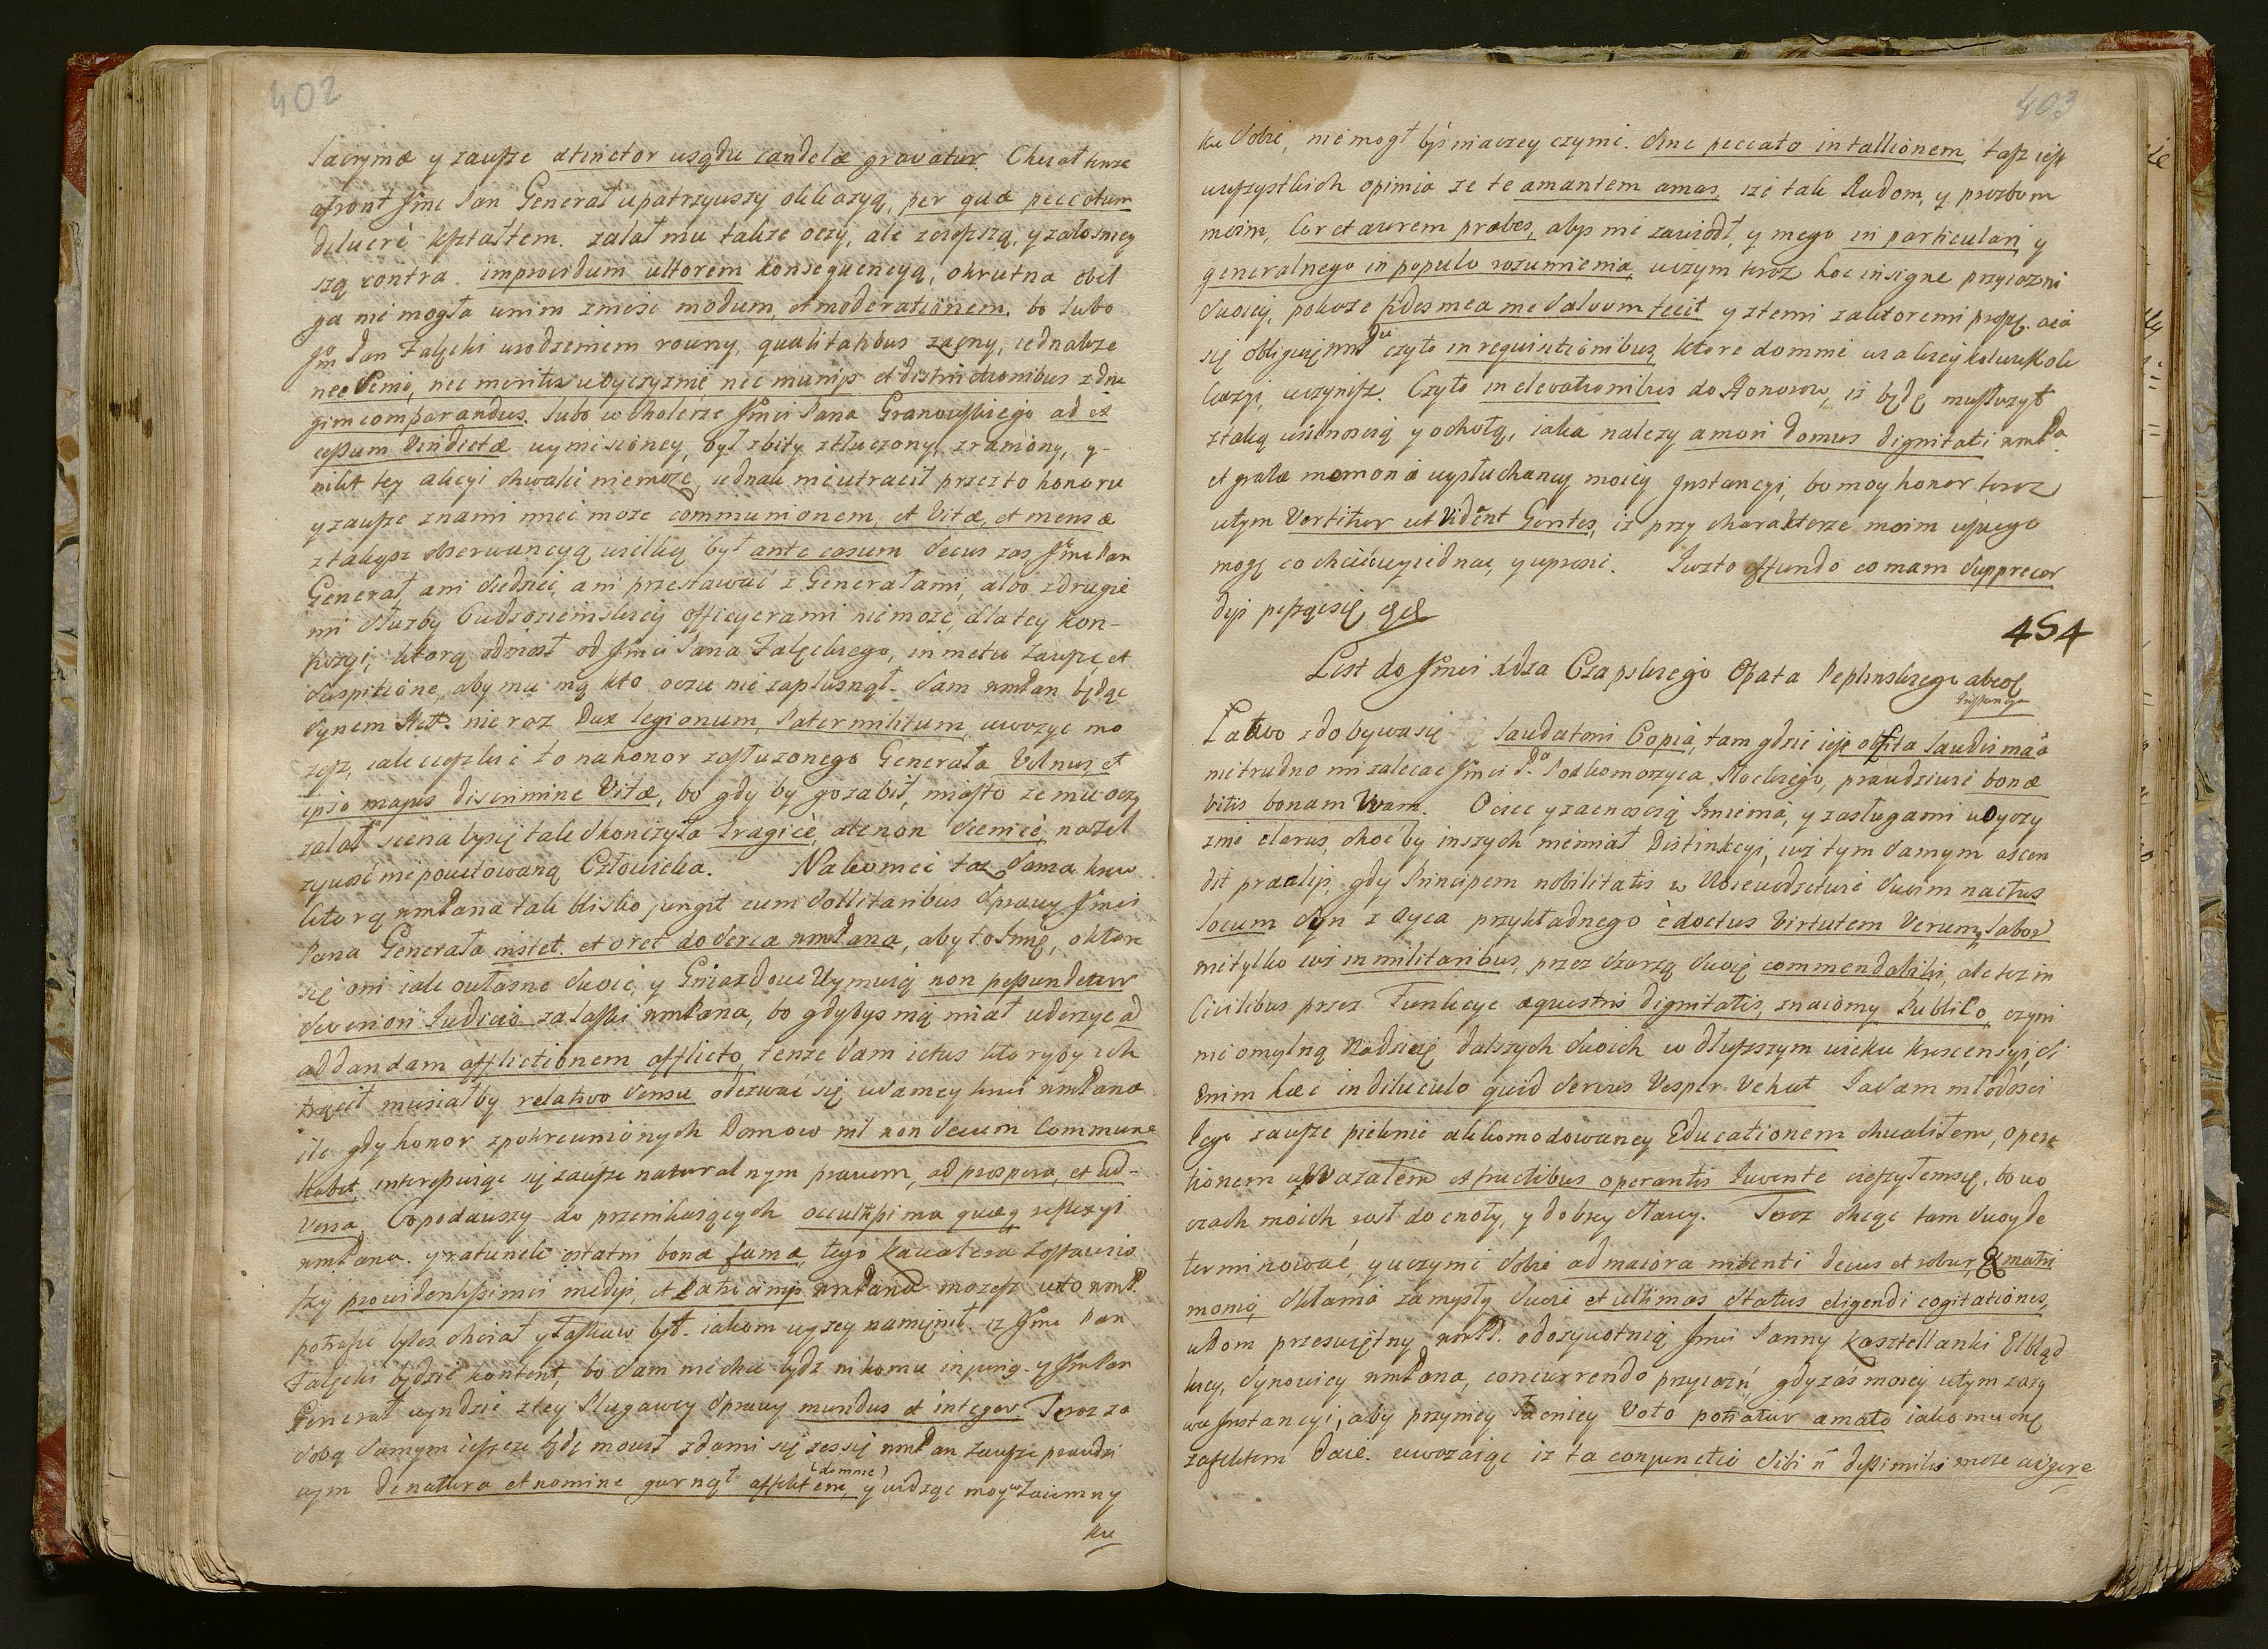 402
lacrymæ y zausze atinctor usądu candelæ gravatur. Chciał tenze
afront Jmć Pan Generał upatrzywszy okkazyą, per quæ peccatum
deluere kształtem. zalał mu także oczy, ale zcięższą, y załosniey
szą contra improvidum ultorem konsequencyą, okrutna obel
ga nie mogła unim zniesc modum, et moderationem, bo lubo
Jm Pan Załęcki urodzeniem rowny, qualitatibus zacny, iednakze
nec Senio, nec meritis uOyczyznie, nec munijs et distinctionibus zdru
gim comparandus. lubo w Cholerze Jmci Pana Granowskiego ad ex
cessum Vindictæ wymiesioney, był zbity ztłuczony, zraniony, y
nikt tey akcyi chwalić niemoze, iednak nieutracił przezto honoru
y zausze znami miec moze communionem, et Vitæ, et mensæ
ztakąsz obserwancyą wielką był ante casum Secus zas Jmć Pan
Generał, ani siedziec, ani przestawać z Generałami, albo zdrugie
mi słuzby Cudzoziemskiey officyerami niemoze, dla tey kon-
fuzyi, ktorą odniosł od Jmci Pana Załęckiego, in metu zausze, et
suspitione, aby mu nią kto oczu nie zaplusnął. Sam wmPan będąc
Synem Hett. nie raz Dux legionum, Pater militum, uwazyc mo
zesz, iak ciężkie to na honor zasłuzonego Generała Vulnus, et
ipso majus discrimine Vitæ, bo gdy by go zabił, miasto ze mu oczy
zalał scena bysię tak skonczyła tragicè, ale non scenicè, nazel
zywosc niepowetowaną Człowieka. Nakoniec taz Sama krew
ktorą wmPana tak blisko jungit cum Sollitaribus Sprawy Jmci
Pana Generała instet et oret do Serca wmPana, aby to Imię, oktore
się oni iak owłasne Swoie, y Gniazdowe Uymuią non pessundetur
Severiori Judicio za łaski wmPana, bo gdybys nią miał uderzyc ad
addandam afflictionem afflicto, tenze Sam ictus ktoryby ich
trącił musiałby relativo Sensu odezwać się uSamey krwi wmPana
ile gdy honor zpokrewnionych Domow nil non Secum Commune
habet, interessuiąc się zausze naturalnym prawem, ad prospera, et ad-
versa. Copodawszy do przenikaiących occultissima quæq reflexyi
wmPana. y ratunek ostatni bonæ famæ, tego Kawalera zostawiwszy
providentissimis medijs, et Patrocinijs wmPana mozesz wto wmP.
potrafic byles chciał y łaskaw był. iakom wyzey namienił iz Jmć Pan
Załęcki będzie kontent, bo Sam niechce bydz nikomu injuriq. y JmPan
Generał wyndzie ztey Plugawey Sprawy mundus et integer. Teraz za
Sobą Samym ieszcze będę mowił zdami się zessię wmPan zausze prawdzi
wym de natura et nomine garnął affektem, (domine) y widząc moy wzaiemny
ku
403
ku Sobie, nie mogł bys inaczey czynic. Sine peccato in tallionem, tasz iest
wszystkich opinia ze te amantem amas, ize tak Radom, y prozbom
moim, Cor et aurem præbes, abys nie zawiodł, y mego in particulari, y
generalnego in populo rozumienia, wczym teraz hoc insigne przyiazni
Swoiey, pokaze fides mea me Salvum fecit y ztemi zaktoremi proszę. ai ia
się obliguię wmPu czyto in requisitionibus, ktore dommie wiakieykolwiek ok
kazyi, uczynisz. Czyto in elevationibus do Honorow, iz będę mu służył
ztaką usilnoscią y ochotą, iaka nalezy amori domus dignitati wmPa
et grata memoria wysłuchaney moiey Instancyi, bo moy honor teraz
wtym Vertitur ut Vidént Gentes, iz przy charakterze moim uswego
mogę co chciec wyiednac, y uprosic. Juzto offundo co mam Supprecor
454
List do Jmci Xdza Czapskiego Opata Peplinskiego abcoż
Łatwo zdobywa się Laudatori Copia, tam gdzie iest obfita laudis mãa
nietrudno mi zalecac Jmci Po Podkomorzyca Płockiego, prawdziwie bonæ
vitis bonam Uvam. Ociec y zacnoscią Imienia, y zasługami uOyczy
znie clarus, choc by inszych niemiał Distinkcyi, iuz tym samym ascen
dit præalijs, gdy Principem nobilitatis w Woiewodztwie Swoim nactus
locum Syn z Oyca przykładnego èdoctus Virtutem Verumq labor
nietylko iuz in militaribus, przez szarzą Swoię commendabilis, ale tez in
Civilibus przez Funkcye æquestris dignitatis, znaiomy Publico, czyni
nieomylną Nadzieię dalszych Swoich w dłuszszym wieku krescensyi, si
Enim hæc in diluculo quid Serius Vesper Vehat Ja Sam młodosci
Iego zausze pieknie akkomodowaney Educationem chwaliłem, opera
tionem uwazałem et fructibus operantis Iuventæ cieszyłemsię, bo wo
czach moich rosł do cnoty, y dobrey Sławy. Teraz chcąc tam Swoy de
terminować, y uczynic Sobie ad maiora nitenti decus et robur, Ex matri
monio, skłania zamysły Swoie et ultimas Status eligendi cogitationes,
wDom przeswiętny wmP. odozywotnią Jmci Panny Kasztellanki Elbląd
kiey, Synowicy wmPana, concurrendo przyiazń, gdy zaś moiey wtym zazy
wa Instancyi, aby przyniey łacniey Voto potiatur amato iako mu onę
zafektem daię. uwazaiąc iz ta conjunctio Sibi ñ dissimilis moze aijgere